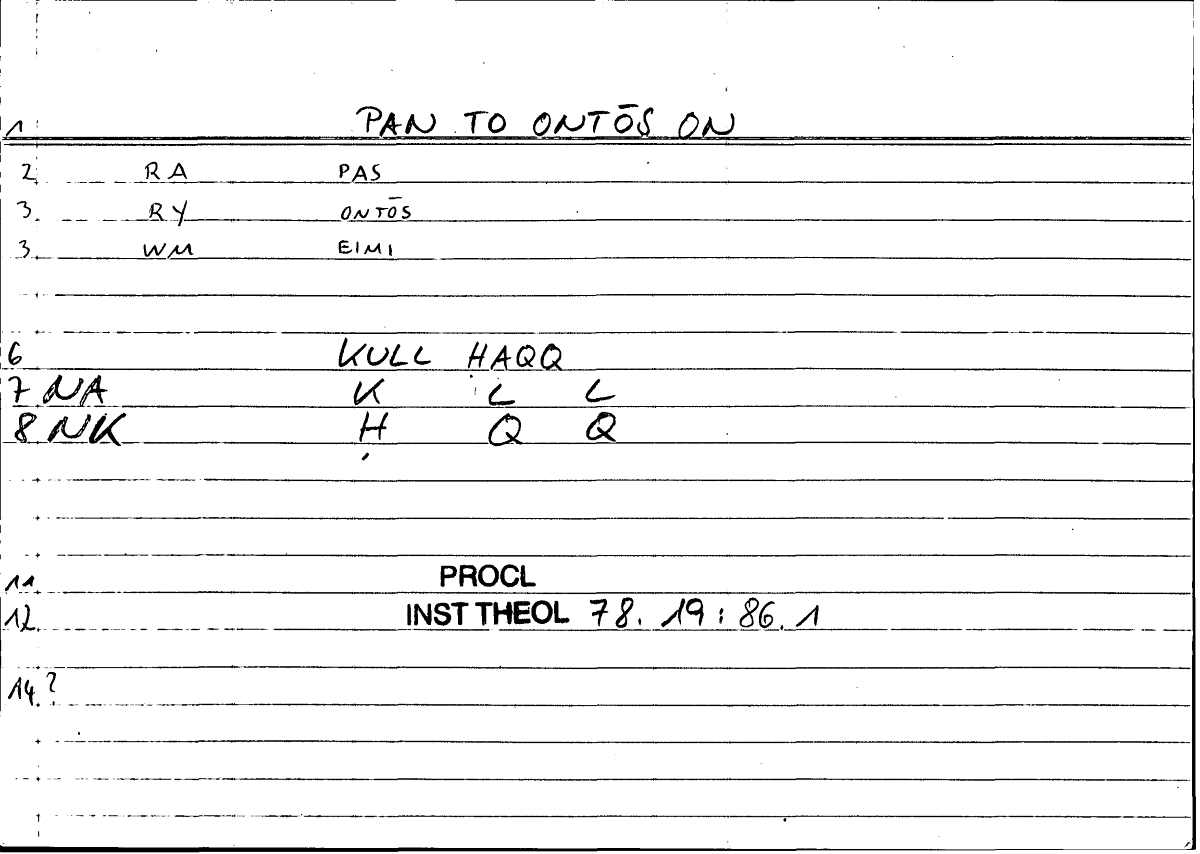 1 PAN TO ONTŌS ON
2 RA PAS
3. RY ONTŌS
3. WM EIMI
6 KULL HAQQ
7 NA K L L
8 NK Ḥ Q Q
11 PROCL
12 INST THEOL 78. 19 : 86. 1
14. ?